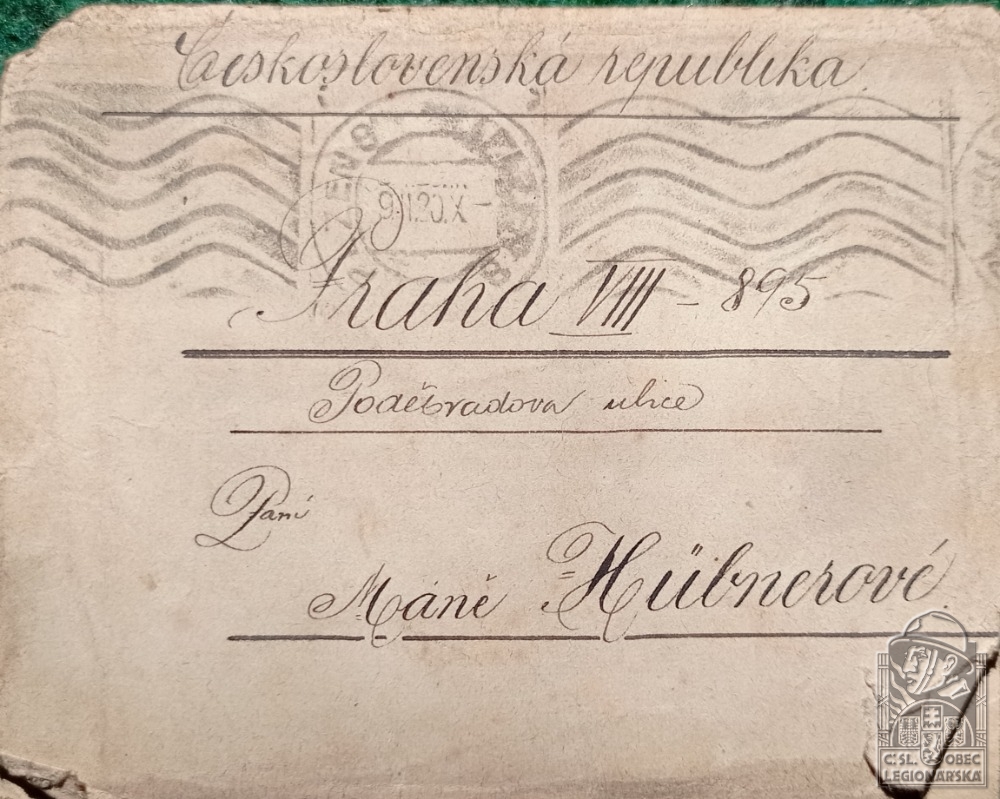 Československá republika
9.II.20.X-
Praha VIII - 895
Poděbradova ulice
Paní
Máně Hübnerové.
ČSL. OBEC
LEGIONÁŘSKÁ